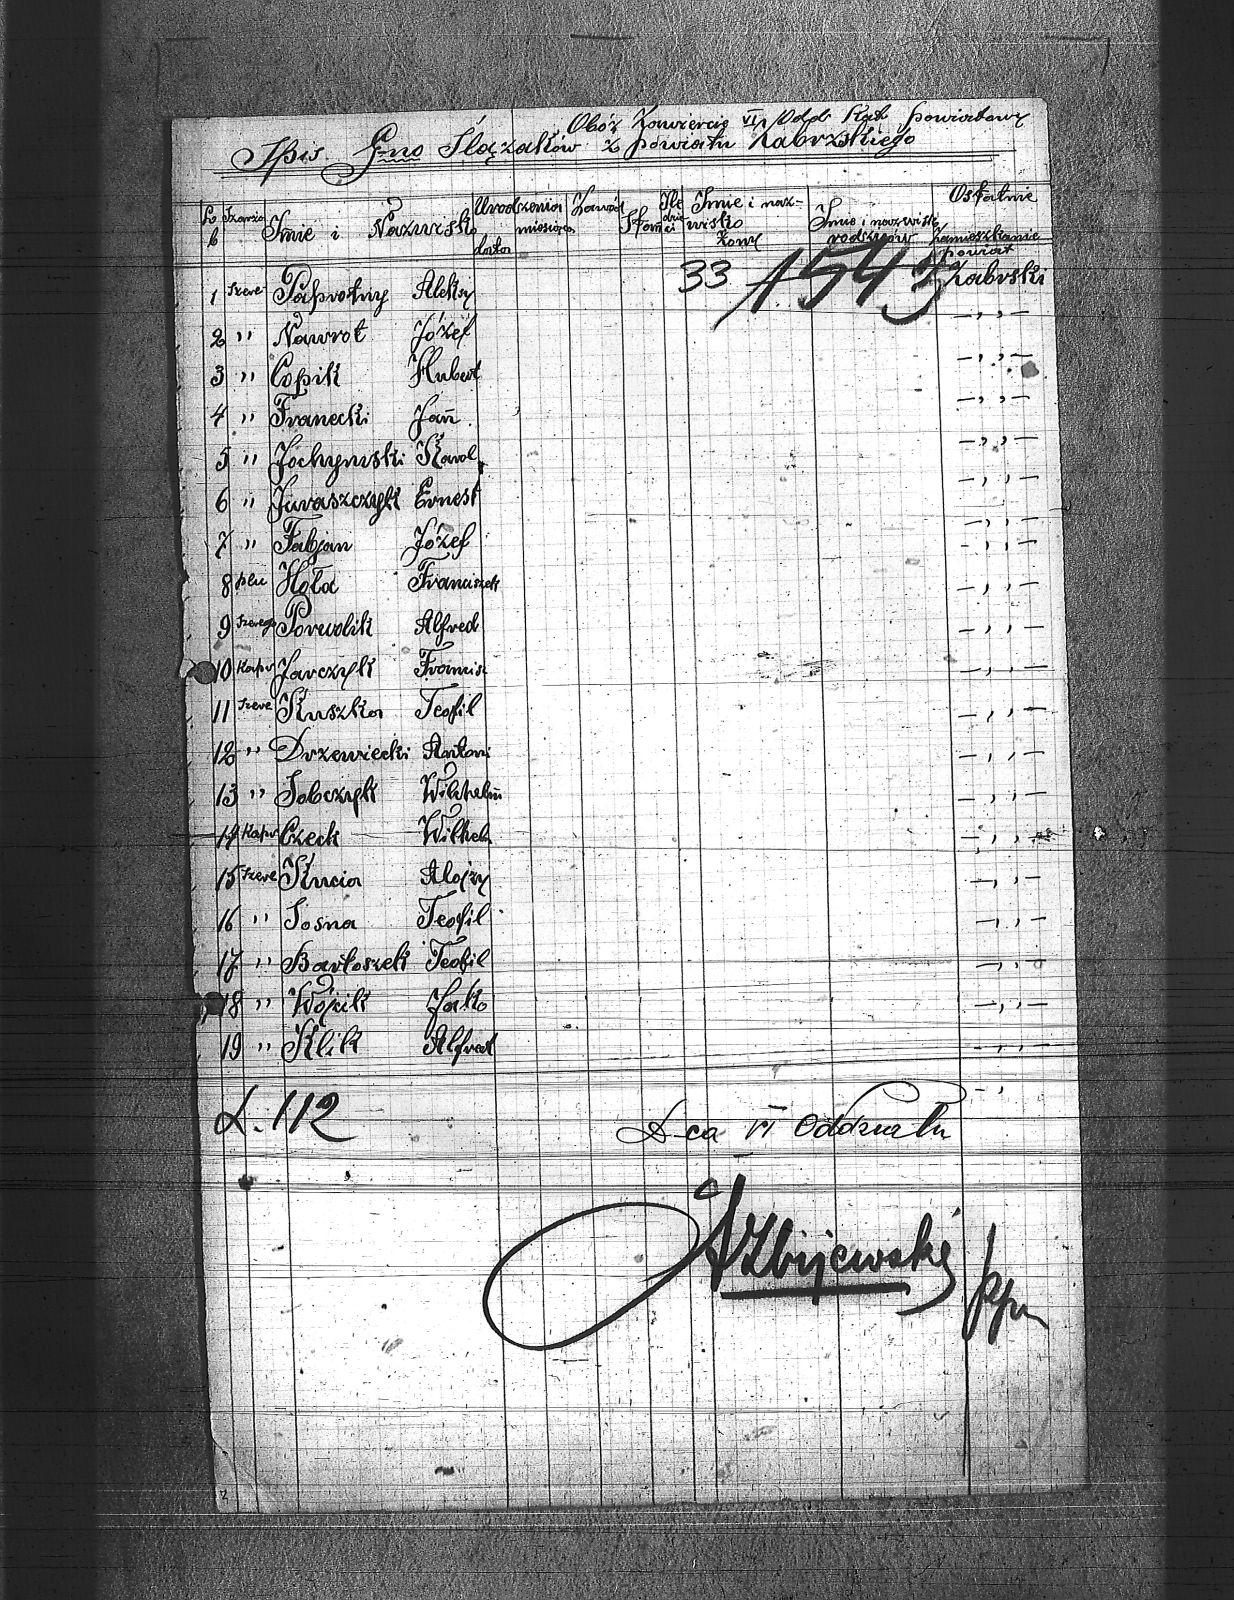 Obóz Zawiercie VI Odd. Rat powiatowy
Spis G-no Ślązaków z powiatu Zabrzskiego
Lb Szarża Imie i Nazwisko Urodzenia data miesiąca Zawód Stan Ile dzieci Imie i naz-wisko żony Imie i nazwisko rodziców Ostatnie zamieszkanie powiat
33 1543
1 Szere Paprotny Aleksy Zabrski
2 " Nawrot Józef -,,-
3 " Copik Hubert -,,-
4 " Franecki Jan -,,-
5 " Jochymski Karol -,,-
6 " Juraszczyk Ernest -,,-
7 " Fabjan Józef -,,-
8 plu Hoła Franciszek -,,-
9 Szereg Porwolik Alfred -,,-
10 Kapr Jarczyk Francis -,,-
11 Szere Kuszka Teofil -,,-
12 " Drzewiecki Antoni -,,-
13 " Sobczyk Wilhelm -,,-
14 Kapr Czech Wilhelm -,,-
15 Szere Kucia Alojzy -,,-
16 " Sosna Teofil -,,-
17 " Bartoszek Teofil -,,-
18 " Wójcik Jako -,,-
19 " Klik Alfred -,,-
L. 112
D-ca VI Oddziału
ppr